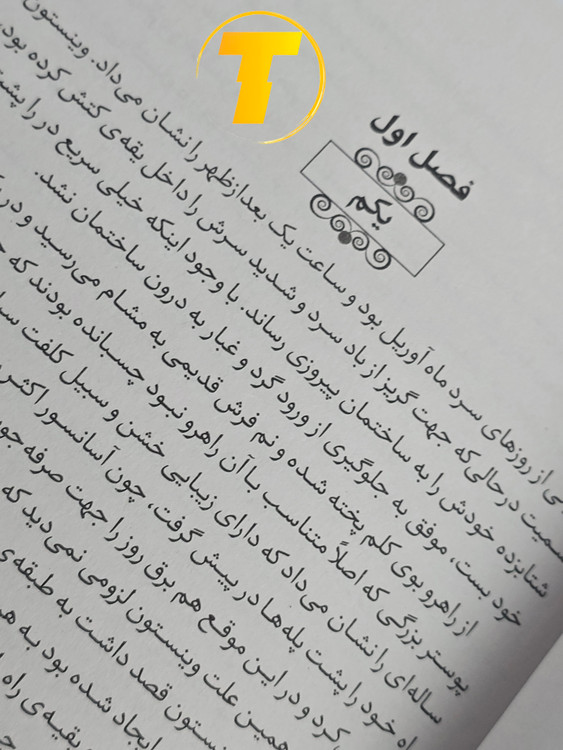 T
فصل اول
یکم
از روزهای سرد ماه آوریل بود و ساعت یک بعدازظهر را نشان می‌داد. وینستون
درحالی‌که جهت گریز از باد سرد و شدید سرش را داخل یقه‌ی کتش کرده بود،
شتابزده خودش را به ساختمان پیروزی رساند. با وجود اینکه خیلی سریع در را پشت
خود بست، موفق به جلوگیری از ورود گرد و غبار به درون ساختمان نشد.
از راهرو بوی کلم پخته شده و نم فرش قدیمی به مشام می‌رسید و در
پوستر بزرگی که اصلاً متناسب با آن راهرو نبود چسبانده بودند که
ساله‌ای را نشان می‌داد که دارای زیبایی خشن و سبیل کلفت
راه خود را پشت پله‌ها در پیش گرفت، چون آسانسور اکثر
کرد و در این موقع هم برق روز را جهت صرفه
همین علت وینستون لزومی نمی‌دید که
وینستون قصد داشت به طبقه‌ی
ایجاد شده بود به
بقیه‌ی راه